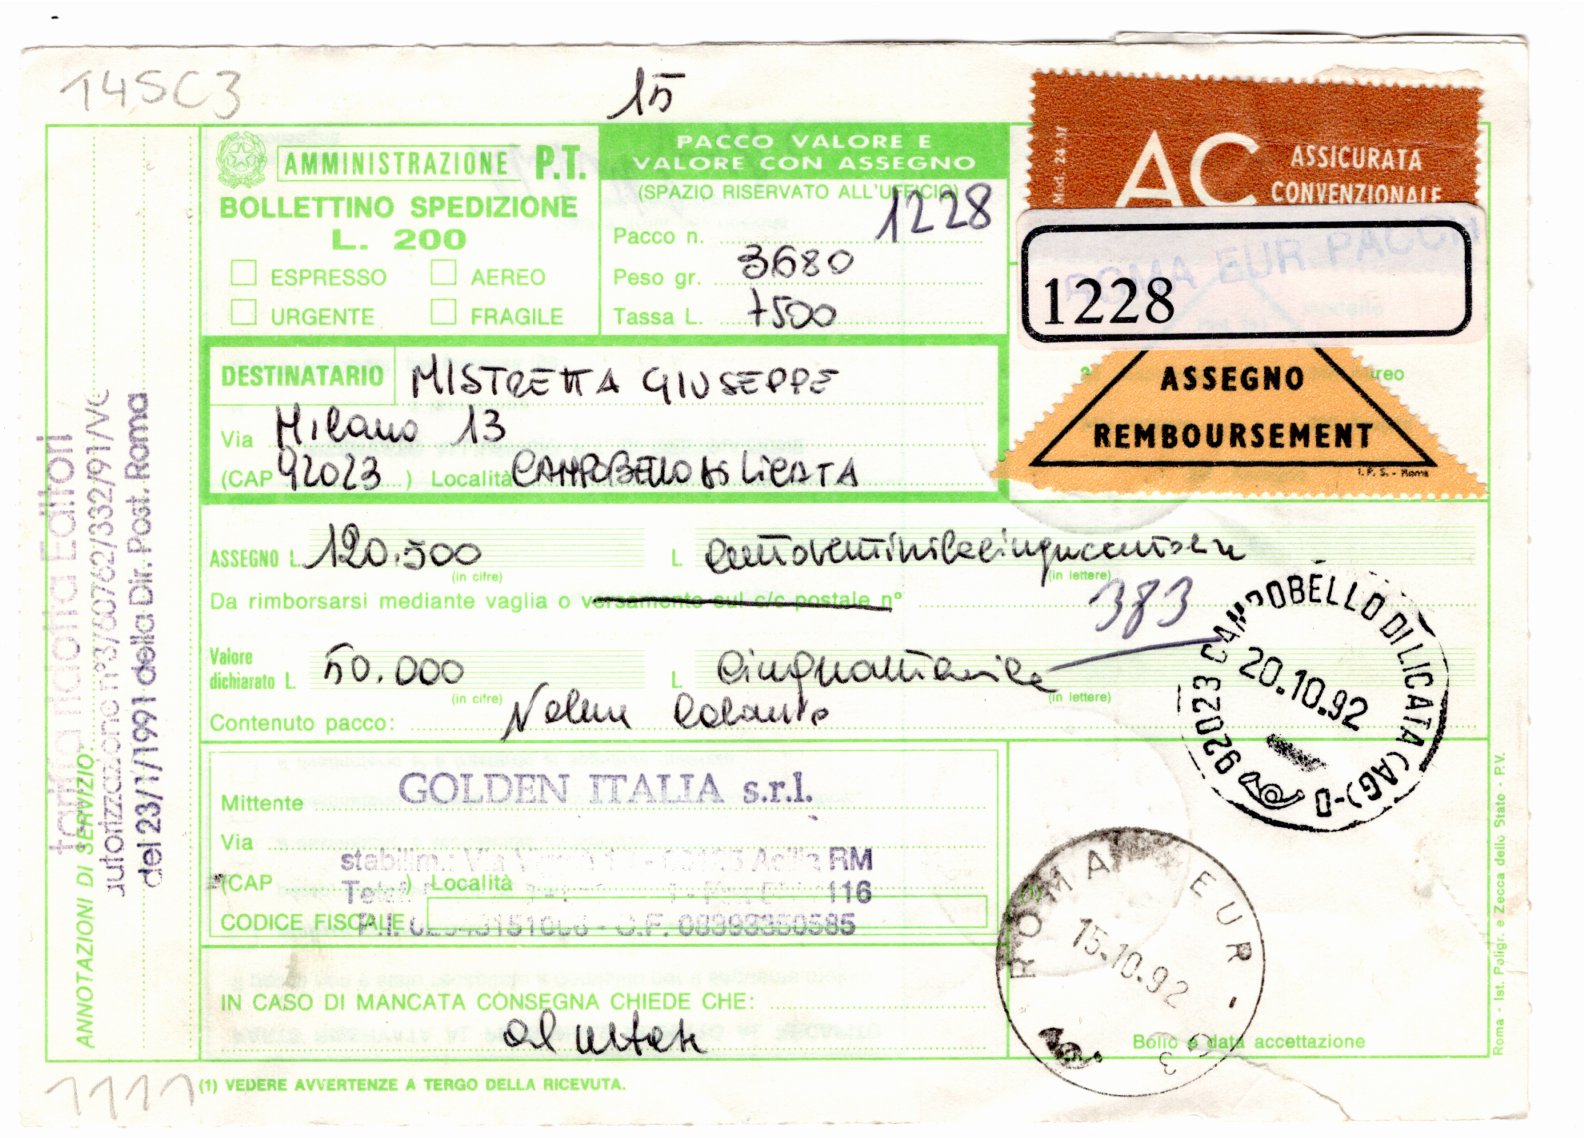 14SC3
15
AMMINISTRAZIONE P.T.
BOLLETTINO SPEDIZIONE
L. 200
ESPRESSO AEREO
URGENTE FRAGILE
PACCO VALORE E
VALORE CON ASSEGNO
(SPAZIO RISERVATO ALL'UFFICIO)
Pacco n. 1228
Peso gr. 3680
Tassa L. 7500
Mod. 24-I
AC ASSICURATA
CONVENZIONALE
ROMA EUR PACCHI
1228
ASSEGNO
REMBOURSEMENT
I. P. S. - Roma
DESTINATARIO MISTRETTA GIUSEPPE
Via Milano 13
(CAP 92023) Località CAMPOBELLO DI LICATA
ASSEGNO L. 120.500 L. centoventimilacinquecento
(in cifre) (in lettere)
Da rimborsarsi mediante vaglia o versamento sul c/c postale n°
383
Valore
dichiarato L. 50.000 L. cinquantamila
(in cifre) (in lettere)
Contenuto pacco:
92023 CAMPOBELLO DI LICATA (AG)-D
20.10.92
Mittente GOLDEN ITALIA s.r.l.
Via
stabilim.: Via Acilia RM
(CAP ) Località
116
CODICE FISCALE
P.I. C.F. 08999350585
IN CASO DI MANCATA CONSEGNA CHIEDE CHE:
ROMA EUR
15.10.92
Bollo e data accettazione
(1) VEDERE AVVERTENZE A TERGO DELLA RICEVUTA.
1111
ANNOTAZIONI DI SERVIZIO:
tariffa ridotta Editori
autorizzazione n°3/60762/332/91/VC
del 23/1/1991 della Dir. Post. Roma
Roma - Ist. Poligr. e Zecca dello Stato - P.V.